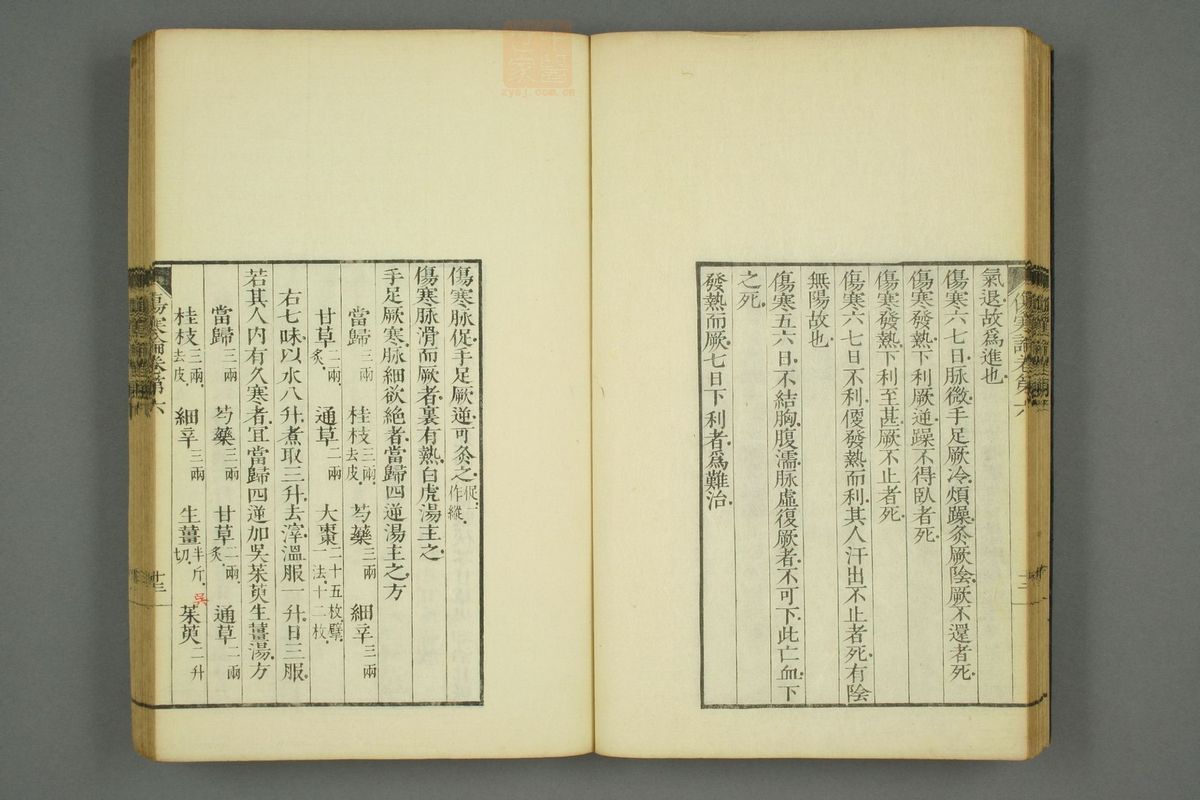 傷寒論卷第六
氣退故爲進也
傷寒六七日脉微手足厥冷煩躁灸厥陰厥不還者死
傷寒發熱下利厥逆躁不得臥者死
傷寒發熱下利至甚厥不止者死
傷寒六七日不利便發熱而利其人汗出不止者死有陰
無陽故也
傷寒五六日不結胸腹濡脉虛復厥者不可下此亡血下
之死
發熱而厥七日下利者爲難治
傷寒脉促手足厥逆可灸之促一作縱
傷寒脉滑而厥者裏有熱白虎湯主之
手足厥寒脉細欲絶者當歸四逆湯主之方
當歸三兩 桂枝三兩去皮 芍藥三兩 細辛三兩
甘草二兩炙 通草二兩 大棗二十五枚擘一法十二枚
右七味以水八升煮取三升去滓溫服一升日三服
若其人內有久寒者宜當歸四逆加吳茱萸生薑湯方
當歸三兩 芍藥三兩 甘草二兩炙 通草二兩
桂枝三兩去皮 細辛三兩 生薑半斤切 吳茱萸二升
傷寒論卷第六
zysj.com.cn